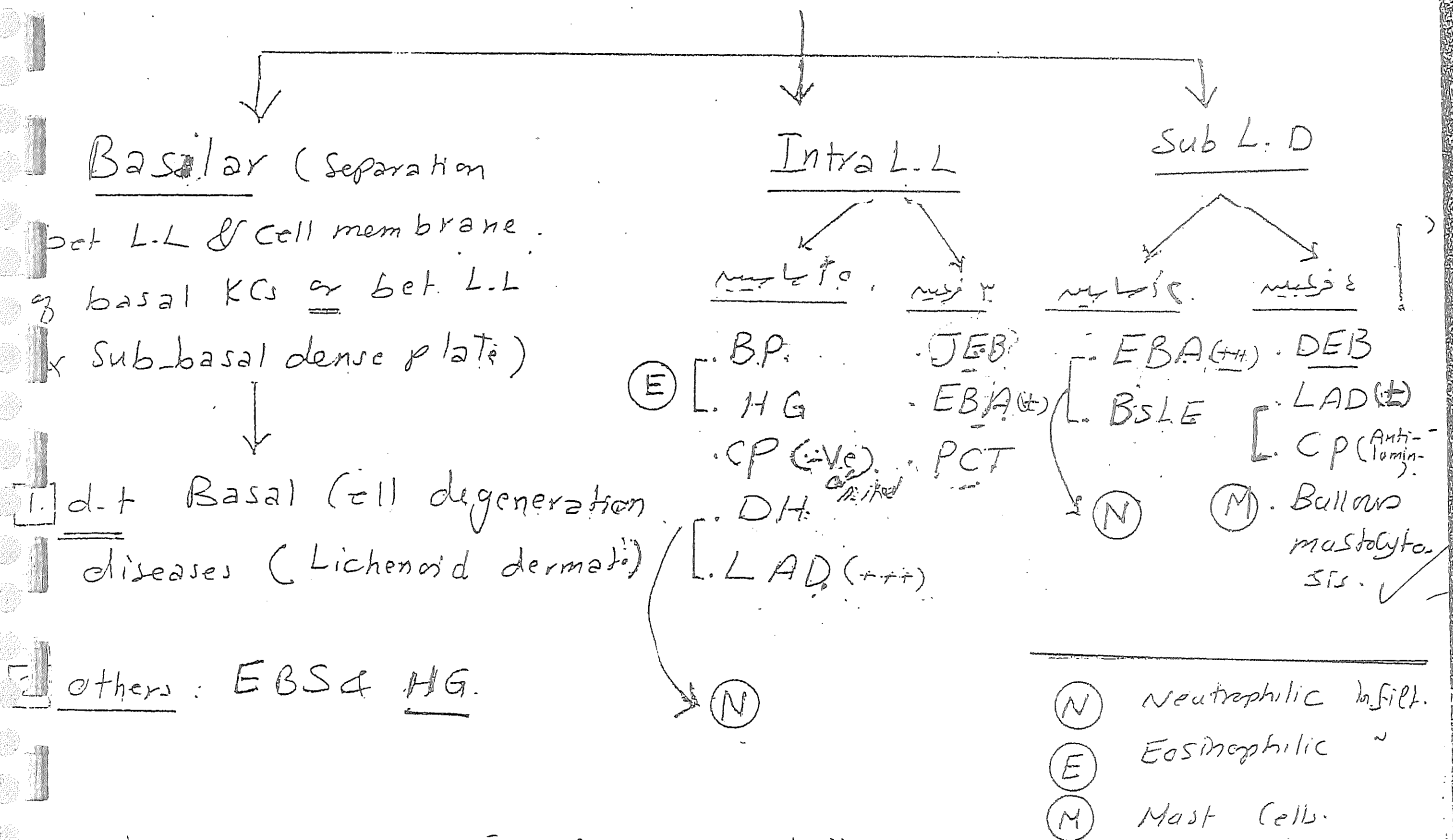 Basilar (Separation
bet L.L & cell membrane.
basal KCs or bet. L.L
Sub-basal dense plate)
1. d.t Basal Cell degeneration
diseases (Lichenoid dermati)
others: EBS & HG.
Intra L.L
٥ أساسيين
E
B.P.
HG
CP (-ve)
DH
LAD (+++)
N
٣ فرعيين
JEB
EBA (+)
PCT
Sub L.D
٢ أساسيين
EBA (++)
BSLE
N
٤ فرعيين
DEB
LAD (+)
CP (Anti-lamin-)
M
Bullous
mastocyto-
sis.
N Neutrophilic infilt.
E Eosinophilic "
M Mast Cells.